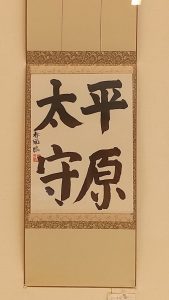 平原
太守